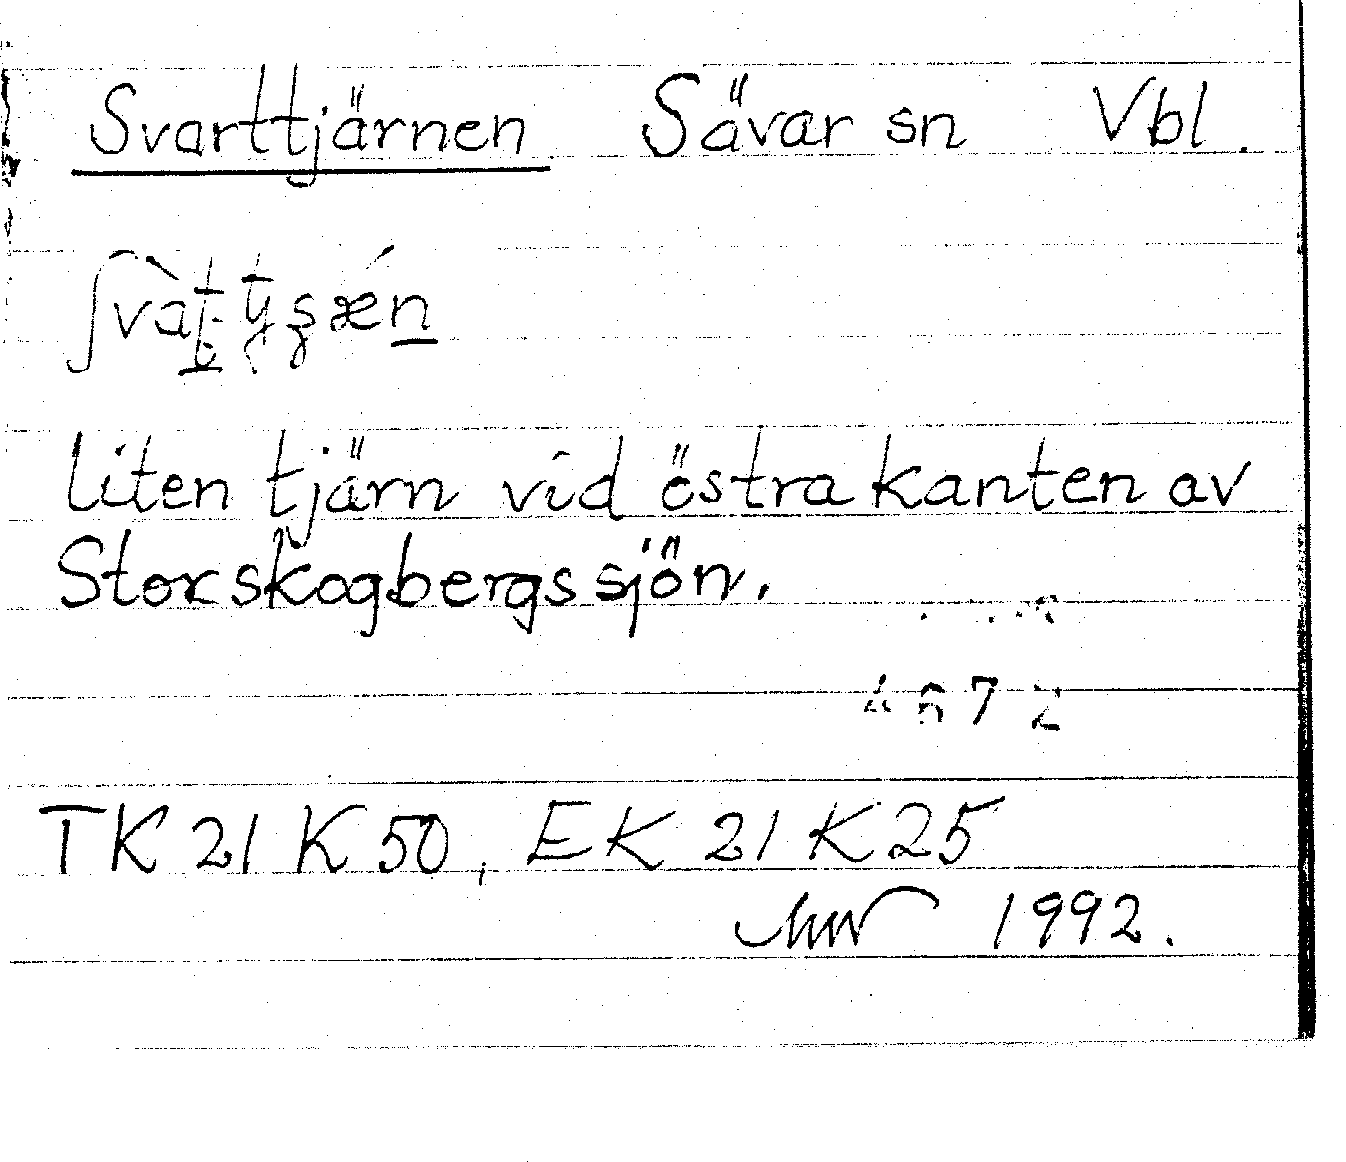 Svarttjärnen Sävar sn Vbl.
liten tjärn vid östra kanten av
Storskogbergssjön.
4672
TK 21 K 50, EK 21 K 25
1992.